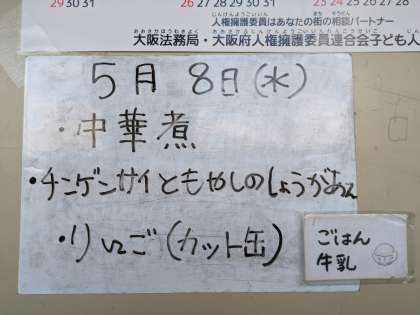 29 30 31
26 27 28 29 30 31
23 24 25 26 27 28
じんけんようごいいん まち そうだん
人権擁護委員はあなたの街の相談パートナー
大阪法務局・大阪府人権擁護委員連合会子ども人
5月 8日(水)
・中華煮
・チンゲンサイともやしのしょうがあえ
・りんご(カット缶)
ごはん
牛乳